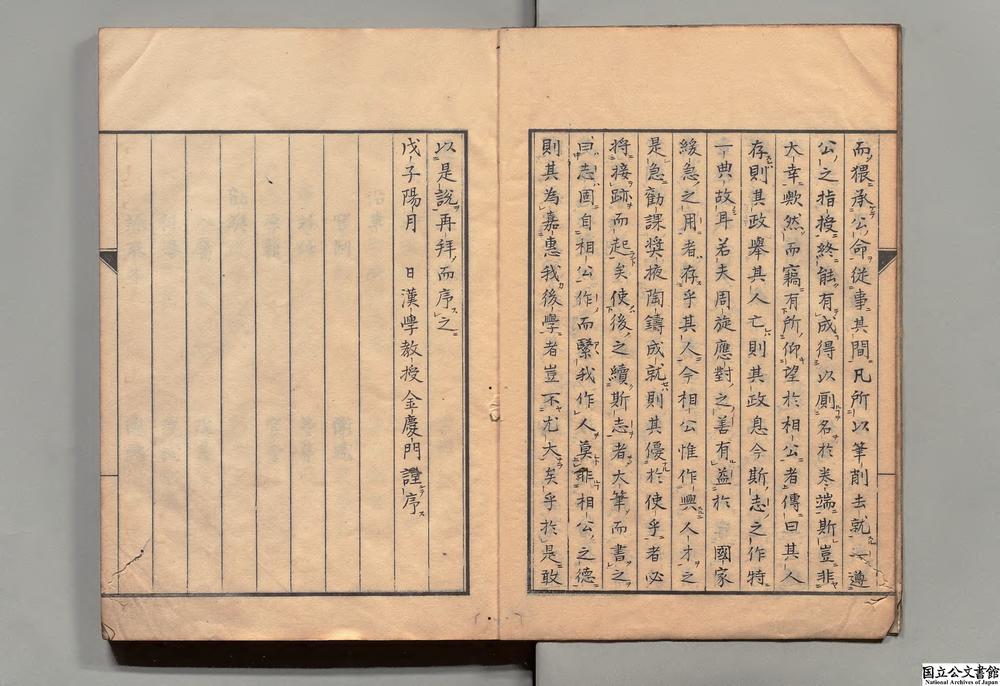 而猥承公命從事其間凡所以筆削去就一遵
公之指授終能有成得以厠名於巻端斯豈非
大幸歟然而竊有所仰望於相公者傳曰其人
存則其政舉其人亡則其政息今斯志之作特
一典故耳若夫周旋應對之善有益於 國家
緩急之用者存乎其人今相公惟作興人才之
是急勸課奬掖陶鑄成就則其優於使乎者必
將接跡而起矣使後之續斯志者大筆而書之
曰志固自相公作而繄我作人莫非相公之德
則其為嘉惠我後學者豈不尤大矣乎於是敢
以是説再拜而序之
戊子陽月 日漢學教授金慶門謹序
国立公文書館
National Archives of Japan